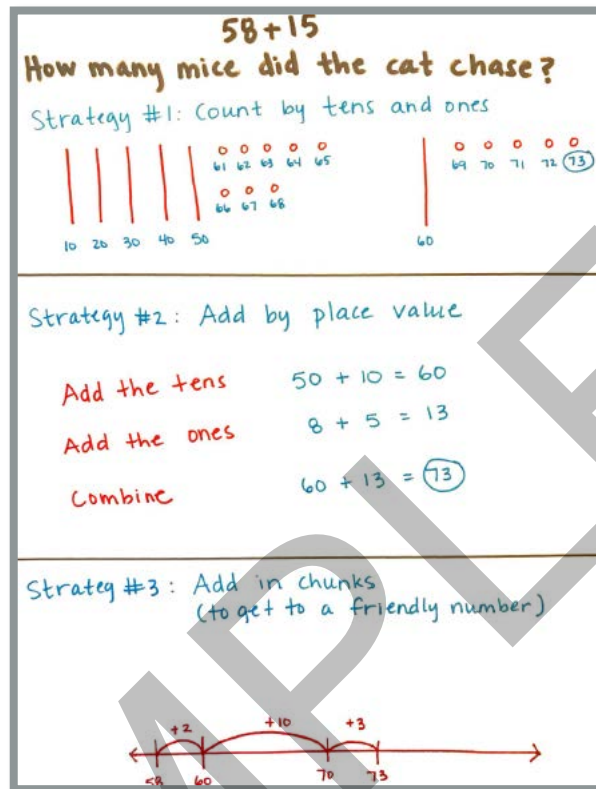 58+15
How many mice did the cat chase?
Strategy #1: Count by tens and ones
61 62 63 64 65
69 70 71 72 73
66 67 68
10 20 30 40 50
60
Strategy #2: Add by place value
Add the tens 50 + 10 = 60
Add the ones 8 + 5 = 13
Combine 60 + 13 = 73
Strateg #3: Add in chunks
(to get to a friendly number)
+2 +10 +3
58 60 70 73
MPLE